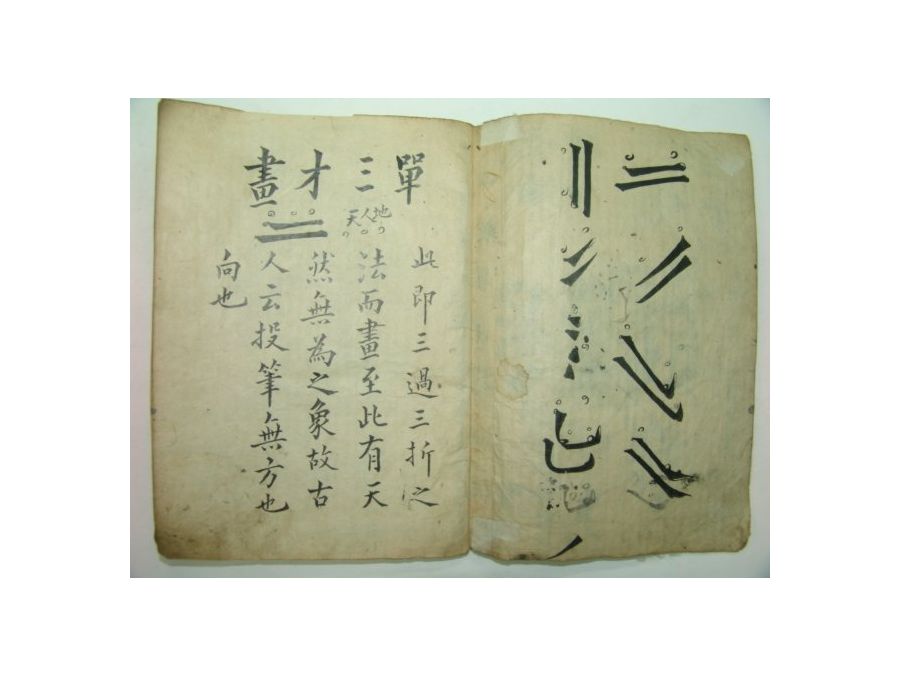 單三才畫
地人天
此即三過三折之
法而畫至此有天
然無為之象故古
人云投筆無方也
向也